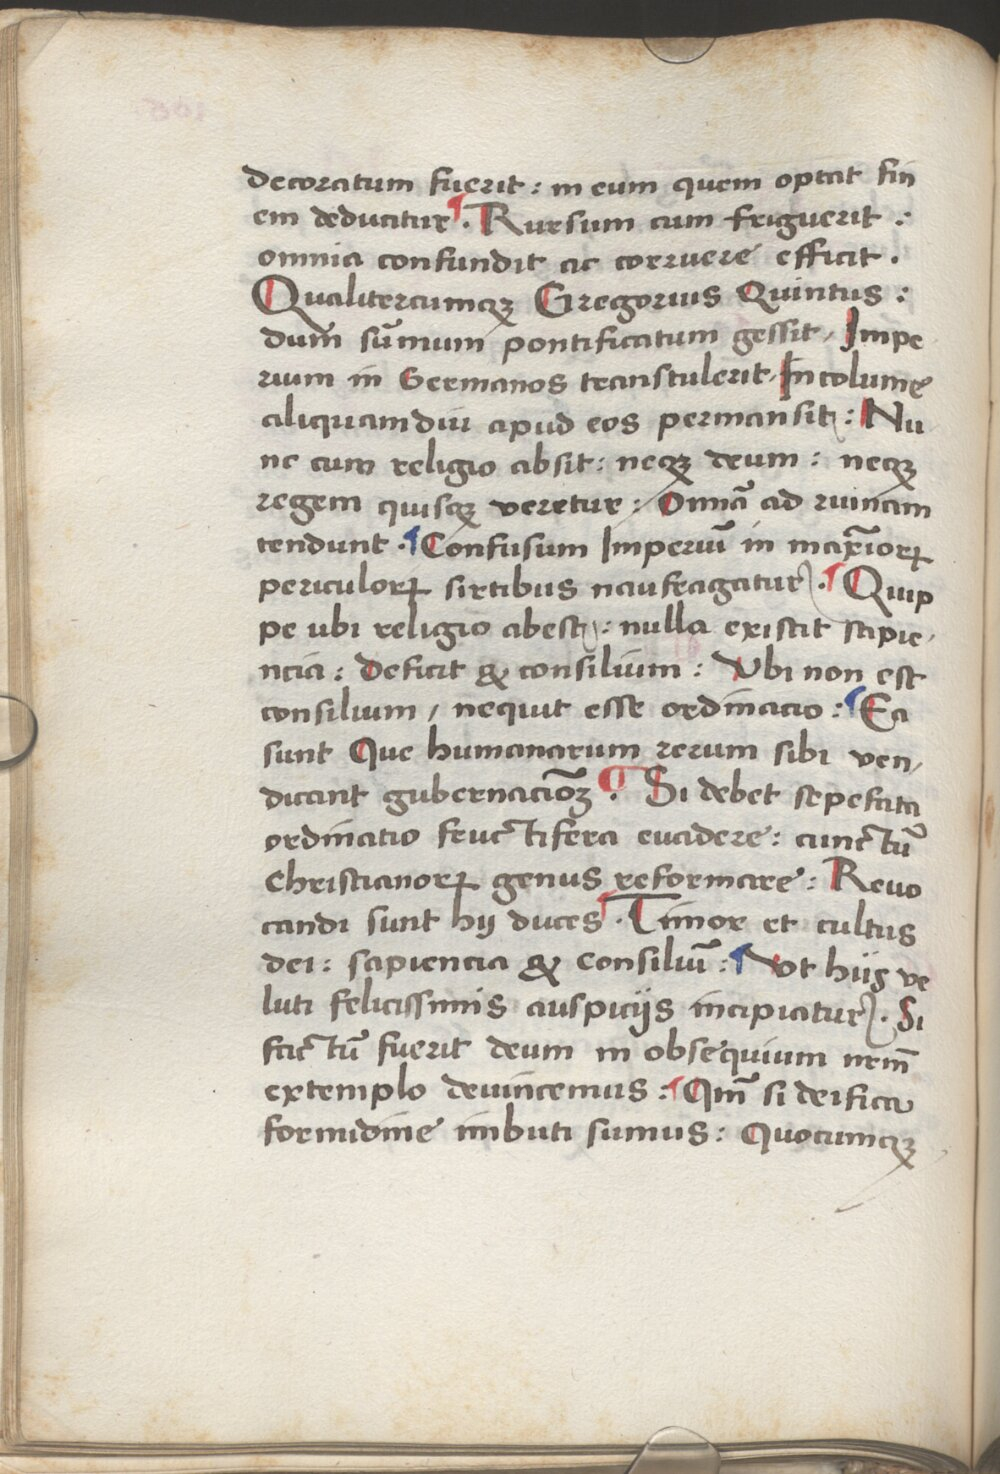 decoratum fuerit : in eum quem optat fin
em deducitur ¶. Rursum cum friguerit :
omnia confundit ac corruere efficit .
Qualitercumqꝫ Gregorius Quintus :
dum sūmum pontificatum gessit / Impe
rium in Germanos transtulerit / Incolume
aliquamdiu apud eos permansit : Nu
nc cum religio absit : neqꝫ deum : neqꝫ
regem quisqꝫ veretur : Omniā ad ruinam
tendunt . ¶ Confusum Imperiū in maxīorꝝ
periculorꝝ sirtibus naufragatur . ¶ Quip
pe ubi religio abest : nulla existit sapie/
ncia : deficit & consilium : Vbi non est
consilium / nequit esse ordinacio : ¶ Ea
sunt Que humanarum rerum sibi ven/
dicant gubernaciōꝫ ¶. Si debet sepefata
ordinatio fructifera euadere : cunctū
christianorꝝ genus reformare : Reuo
candi sunt hij duces ¶. Timor et cultus
dei : sapiencia & consiliū : ¶ Vt hijs ve
luti felicissimis auspicijs incipiatur . Si
factū fuerit deum in obsequium nrm̄
extemplo deuincemus : ¶ Qm̄ si deifica
formidine imbuti sumus : Quocumqꝫ